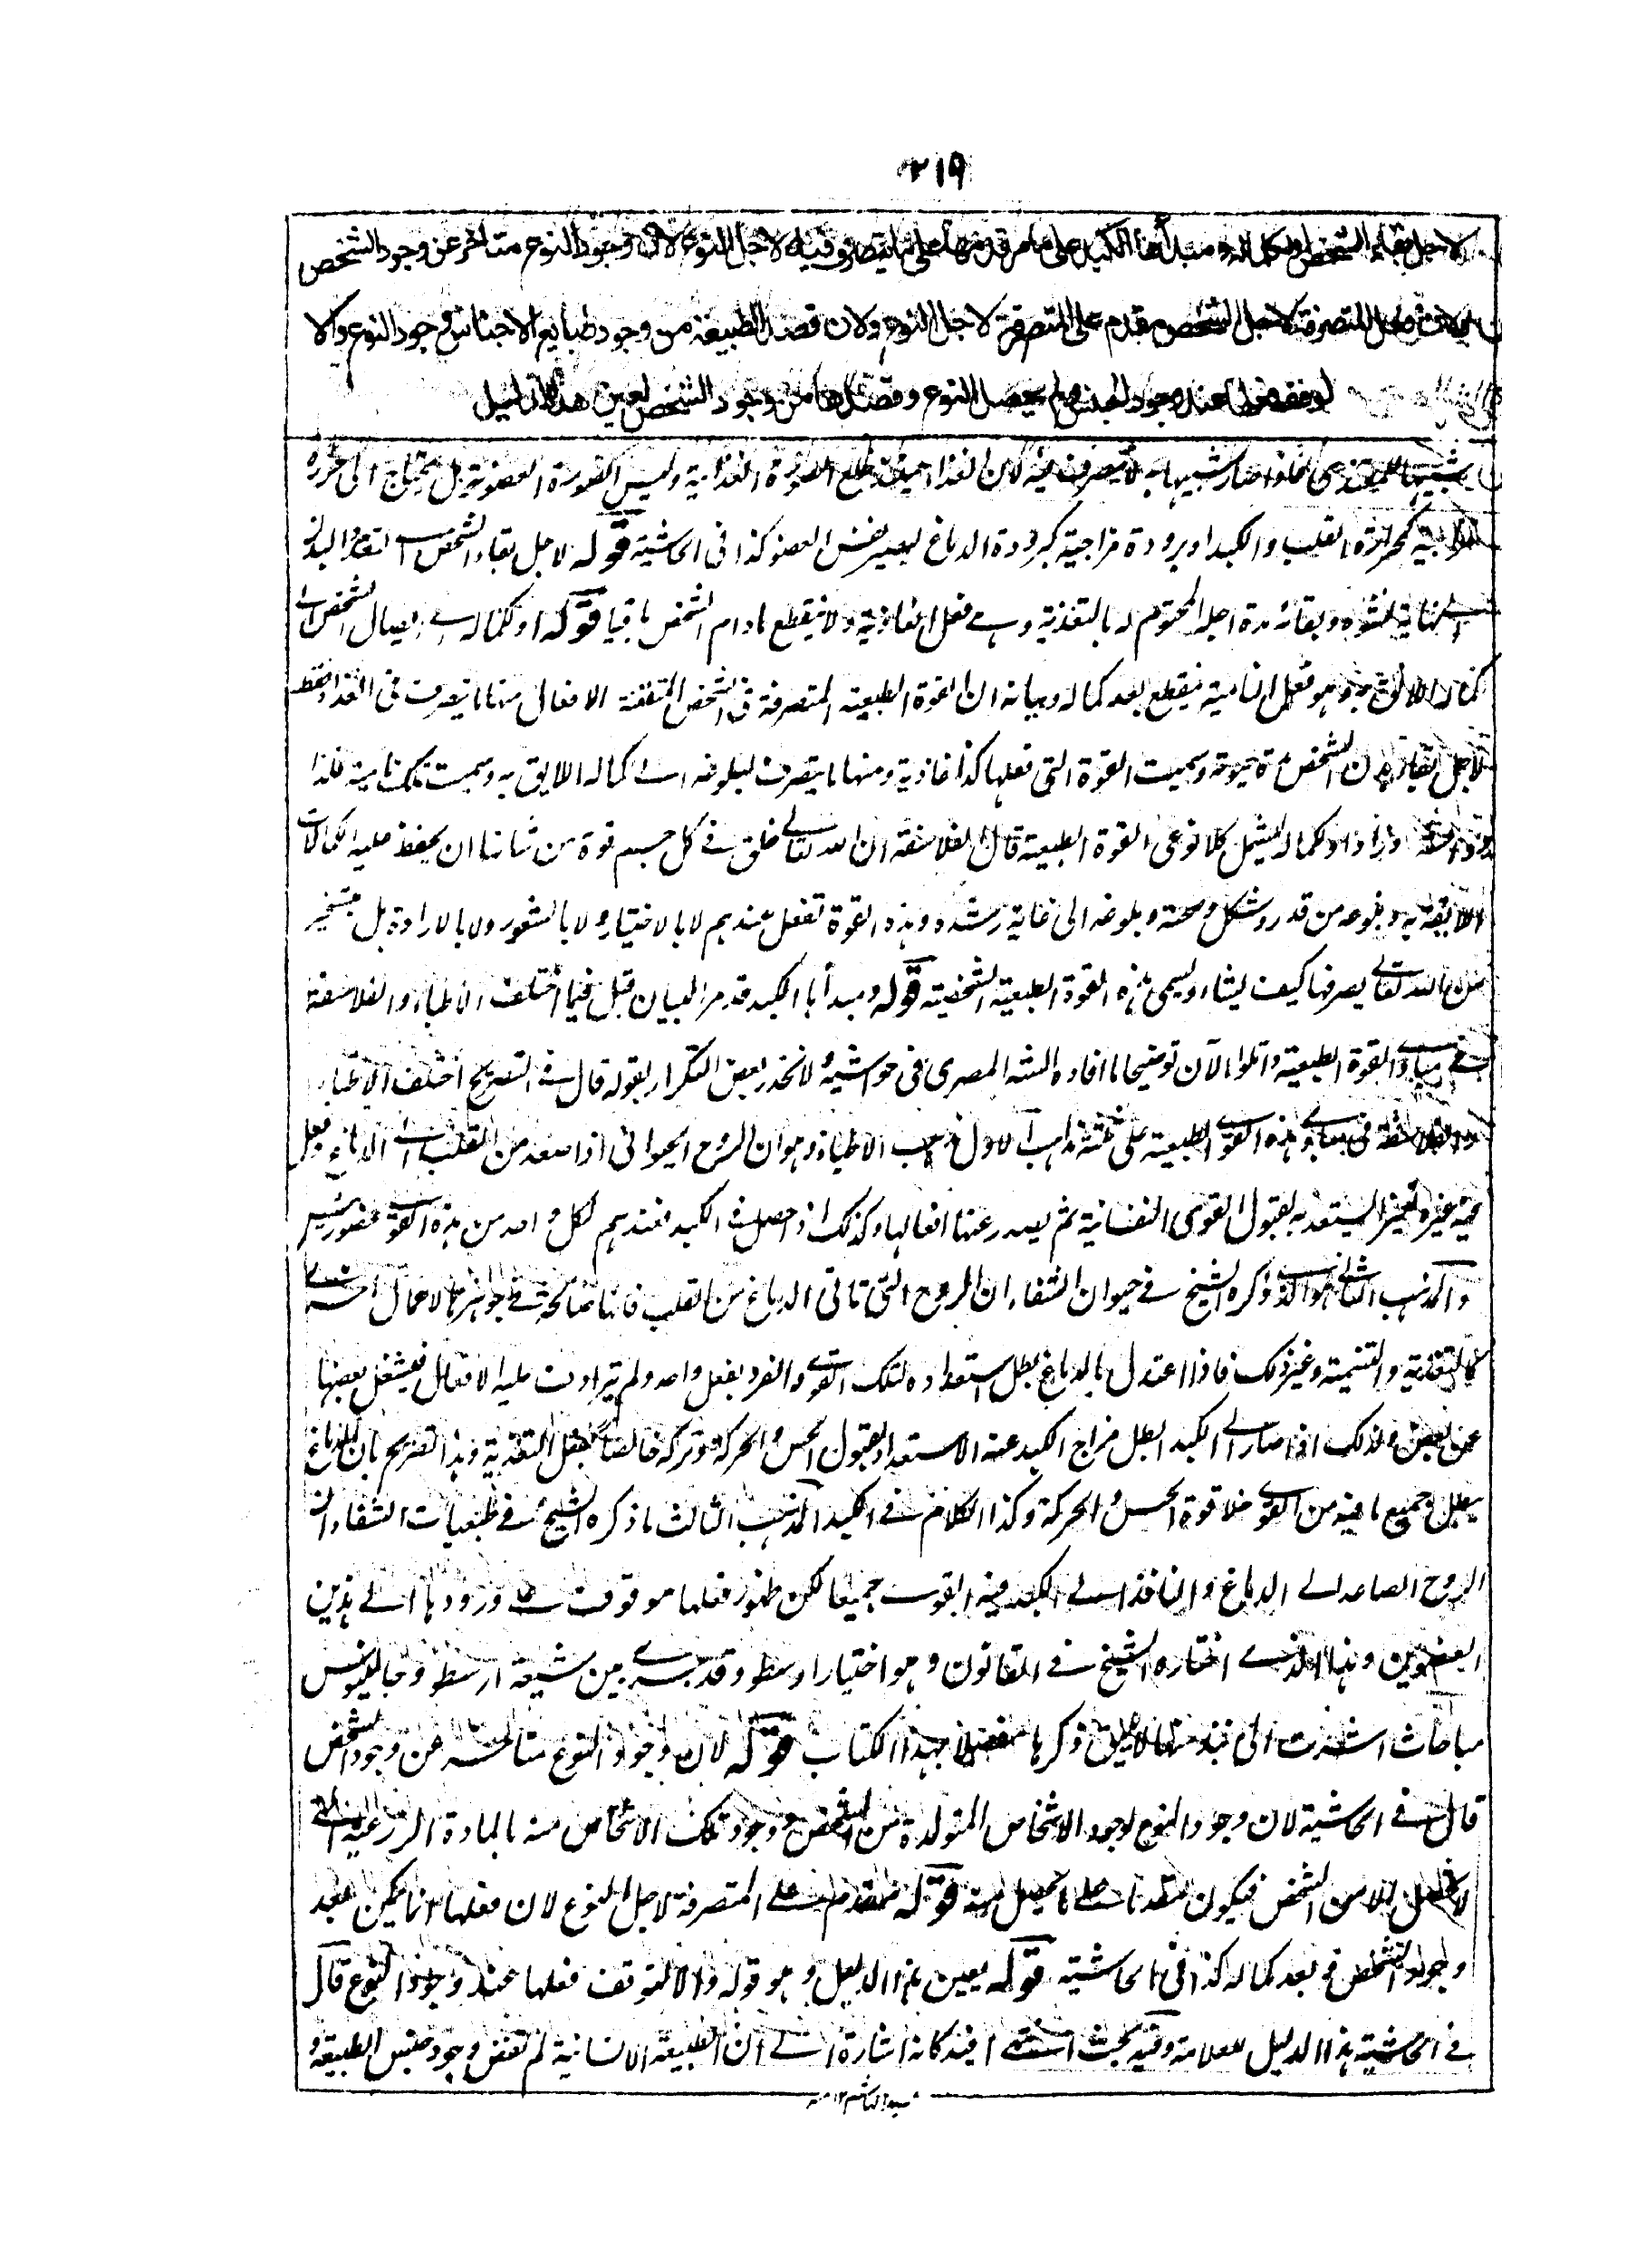 ٢١٩
لاجل بقاء الشخص او كماله ومبدأها الكبد على ما مر قدمها على المتصرفة لاجل النوع لان وجود النوع متاخر عن وجود الشخص
المتصرفة لاجل الشخص مقدم على المتصرفة لاجل النوع ولان قصد الطبيعة من وجود طبايع الاجناس وجود النوع والا
لوقف فعلها عند وجود الجنس ولم يحصل النوع وقصدها من وجود الشخص لعين هذا الدليل
شبيها بالمغتذى صار شبيها به لا يتصرف فيه لان الغذاء يخلع الصورة الغذائية وليس الصورة العضوية بل يحتاج الى حرارة
كحرارة القلب والكبد او برودة مزاجية كبرودة الدماغ ليصير نفس العضو كذا فى الحاشية قوله لاجل بقاء الشخص
نشوه وبقائه مدة اجله المحتوم له بالتغذية وهى فعل الغاذية ولا ينقطع مادام الشخص باقيا قوله او لكماله اى ايصال الشخص الى
كماله اللائق به وهو فعل النامية فينقطع بعد كماله وبيانه ان القوة الطبيعية المتصرفة فى الشخص المتفننة الافعال منها ما يتصرف فى الغذاء فقط
لاجل بقاء بدن الشخص مدة حيوته وسميت القوة التى فعلها كذا غاذية ومنها ما يتصرف لبلوغه الى كماله اللايق به وسميت تلك نامية فلذا
وزاد او لكماله ليشمل كلا نوعى القوة الطبيعية قال الفلاسفة ان الله تعالى خلق فى كل جسم قوة من شانها ان يحفظ عليه الكمالات
اللائقة به ونوعه من قدر وشكل وصحة وبلوغه الى غاية رشده وهذه القوة تفعل عندهم لا بالاختيار ولا بالشعور ولا بالارادة بل بتسخير
من الله تعالى يصرفها كيف يشاء ويسمى هذه القوة الطبيعية الشخصية قوله ومبدأها الكبد قد مر البيان قبل فيما اختلف الاطباء والفلاسفة
فى مبادى القوة الطبيعية واتلوا الآن توضيحا ما افاده المصرى فى حواشيه لا نحذر بعض التكرار بقوله قال فى التصريح اختلف الاطباء
والفلاسفة فى مبادى هذه القوى الطبيعية على ثلثة مذاهب الاول مذهب الاطباء وهو ان الروح الحيوانى اذا صعد من القلب الى الدماغ فعل
فيه غيره تغيرا يستعد به لقبول القوى النفسانية ثم يصدر عنها افعالها وكذلك اذ حصل فى الكبد فعندهم لكل واحد من هذه القوى عضو رئيس
والمذهب الثانى هو الذى ذكره الشيخ فى حيوان الشفاء ان الروح التى تاتى الدماغ من القلب فانها صالحة فى جوهرها لاعمال اخرى
كالتغذية والتنمية وغير ذلك فاذا اعتدل بالدماغ بطل استعداده لتلك القوى وانفرد بفعل واحد ولم يترادف عليه الافعال فيشغل بعضها
عن بعض وكذلك اذا صار الى الكبد ابطل مزاج الكبد عنه الاستعداد لقبول الحس والحركة وتركه خالصا لفعل التغذية وهذا تصريح بان الدماغ
يبطل جميع ما فيه من القوى خلا قوة الحس والحركة وكذا الكلام فى الكبد المذهب الثالث ما ذكره الشيخ فى طبعيات الشفاء ان
الروح الصاعد الى الدماغ والنافذ الى الكبد فيه القوى جميعا لكن ظهور فعلها موقوف على ورودها الى هذين
العضوين وهذا الذى اختاره الشيخ فى القانون وهو اختيار ارسطو وقد جرى بين شيعة ارسطو وجالينوس
مباحثات اشرت الى نبذ منها لا يليق ذكرها مفصلا بهذا الكتاب قوله لان وجود النوع متاخر عن وجود الشخص
قال فى الحاشية لان وجود النوع لوجود الاشخاص المتولدة من الشخص ووجود تلك الاشخاص منه بالمادة الزرعية التى
لا تحصل الا من الشخص فيكون متقدما على ما يحصل منه قوله مقدم على المتصرفة لاجل النوع لان فعلها انما يمكن بعد
وجود الشخص وبعد كماله كذا فى الحاشية قوله بعين هذا الدليل وهو قوله والا لتوقف فعلها عند وجود النوع قال
فى الحاشية هذا الدليل للعلامة وفيه بحث انتهى افيد كانه اشارة الى ان الطبيعة الانسانية لم تقتض وجود جنس الطبيعة و